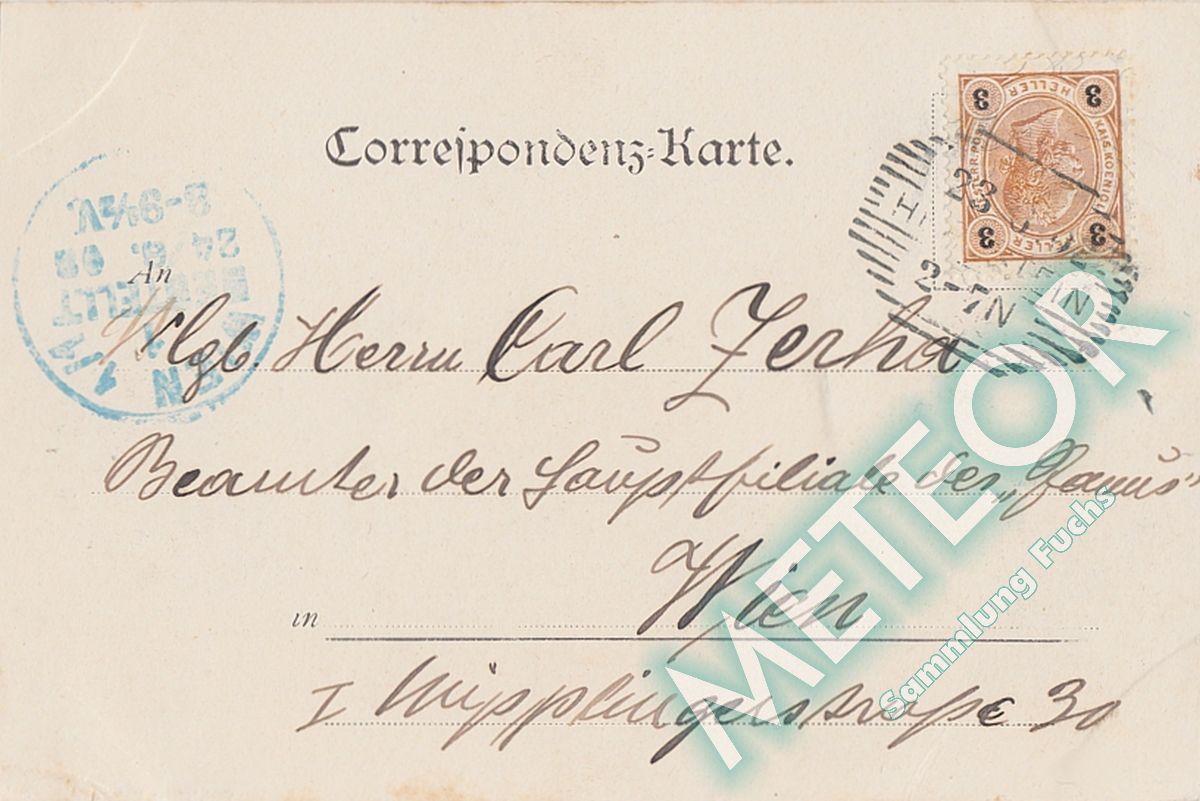 Correspondenz-Karte.
3 HELLER 3
3 HELLER 3
KAIS. KOENIGL.
WIEN 1/1
BESTELLT
24/6. 02
8-9½V.
WIEN
23
2-7N
An
Wlgb. Herrn Carl Zerha
Beamter der Hauptfiliale des „Janus“
in Wien
I Wipplingerstraße 30
METEOR
Sammlung Fuchs